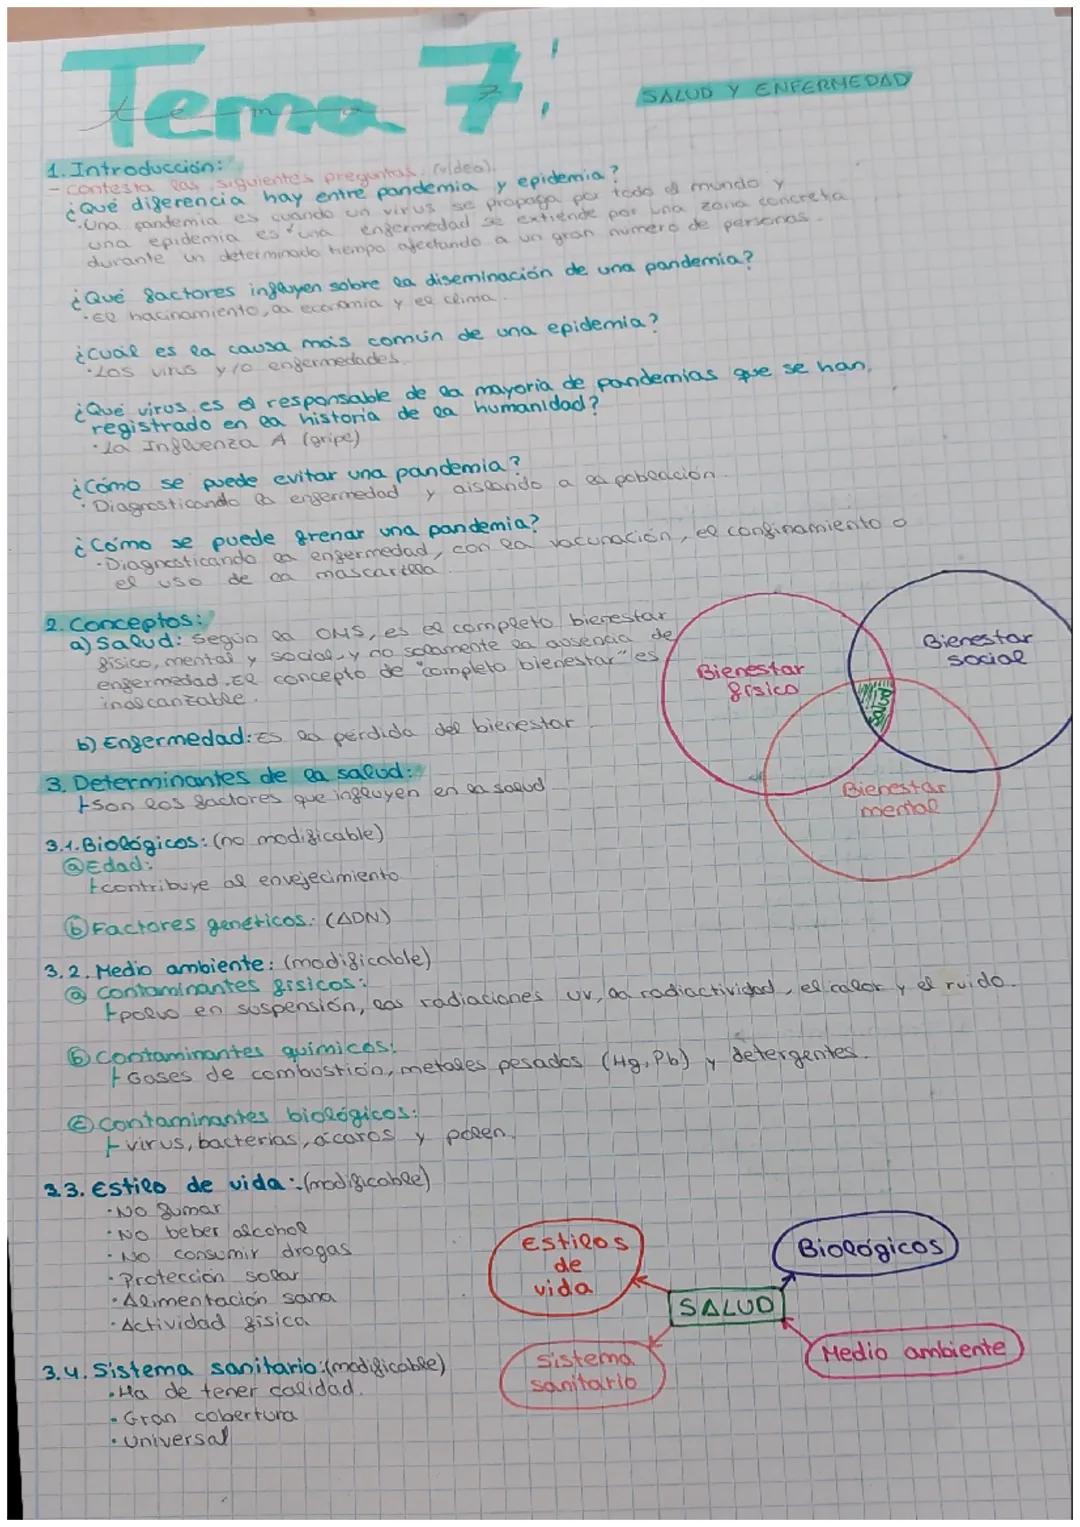 Tema 7:
SALUD Y ENFERMEDAD
1. Introducción:
- Contesta las siguientes preguntas. (vídeo).
¿Qué diferencia hay entre pandemia y epidemia?
· Una pandemia es cuando un virus se propaga por todo el mundo y
una epidemia es una enfermedad se extiende por una zona concreta
durante un determinado tiempo afectando a un gran numero de personas.
¿Qué factores influyen sobre la diseminación de una pandemia?
· El hacinamiento, la economía y el clima.
¿Cuál es la causa más común de una epidemia?
· Los virus y/o enfermedades.
¿Qué virus es el responsable de la mayoría de pandemias que se han
registrado en la historia de la humanidad?
· La Influenza A (gripe)
¿Cómo se puede evitar una pandemia?
· Diagnosticando la enfermedad y aislando a la población.
¿Cómo se puede frenar una pandemia?
· Diagnosticando la enfermedad, con la vacunación, el confinamiento o
el uso de la mascarilla.
2. Conceptos:
a) Salud: Según la OMS, es el completo bienestar
físico, mental y social, y no solamente la ausencia de
enfermedad. El concepto de "completo bienestar" es
inalcanzable.
b) Enfermedad: Es la pérdida del bienestar
Bienestar
físico
Bienestar
social
Bienestar
mental
3. Determinantes de la salud:
Son los factores que influyen en la salud
3.1. Biológicos: (no modificable)
a Edad:
contribuye al envejecimiento
b Factores genéticos: (ADN)
3.2. Medio ambiente: (modificable)
a Contaminantes físicos:
polvo en suspensión, las radiaciones UV, la radiactividad, el calor y el ruido.
b Contaminantes químicos:
Gases de combustión, metales pesados (Hg, Pb) y detergentes.
c Contaminantes biológicos:
virus, bacterias, ácaros y polen.
3.3. Estilo de vida: (modificable)
· No fumar
· No beber alcohol
· No consumir drogas
· Protección solar
· Alimentación sana
· Actividad física
3.4. Sistema sanitario: (modificable)
· Ha de tener calidad.
· Gran cobertura
· Universal
Estilos
de
vida
Biológicos
SALUD
Sistema
sanitario
Medio ambiente